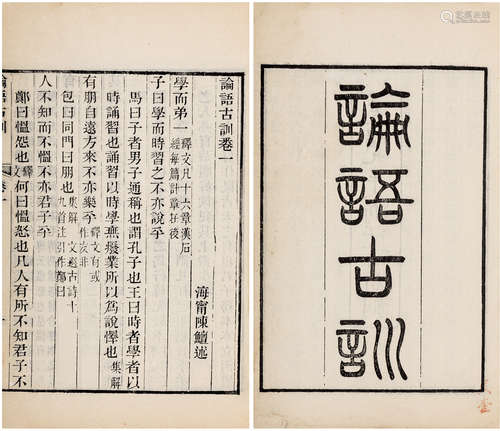 論語古訓
論語古訓卷一
學而弟一
釋文凡十六章漢石
經每篇計章在後
海甯陳鱣述
子曰學而時習之不亦說乎
馬曰子者男子通稱也謂孔子也王曰時者學者以
時誦習也誦習以時學無廢業所以為說懌也
集解
有朋自遠方來不亦樂乎
釋文有或
作友非
包曰同門曰朋也
集解文選古詩十
九首注引作鄭曰
人不知而不慍不亦君子乎
鄭曰慍怨也
釋文
何曰慍怒也凡人有所不知君子不
論語古訓
卷一
一